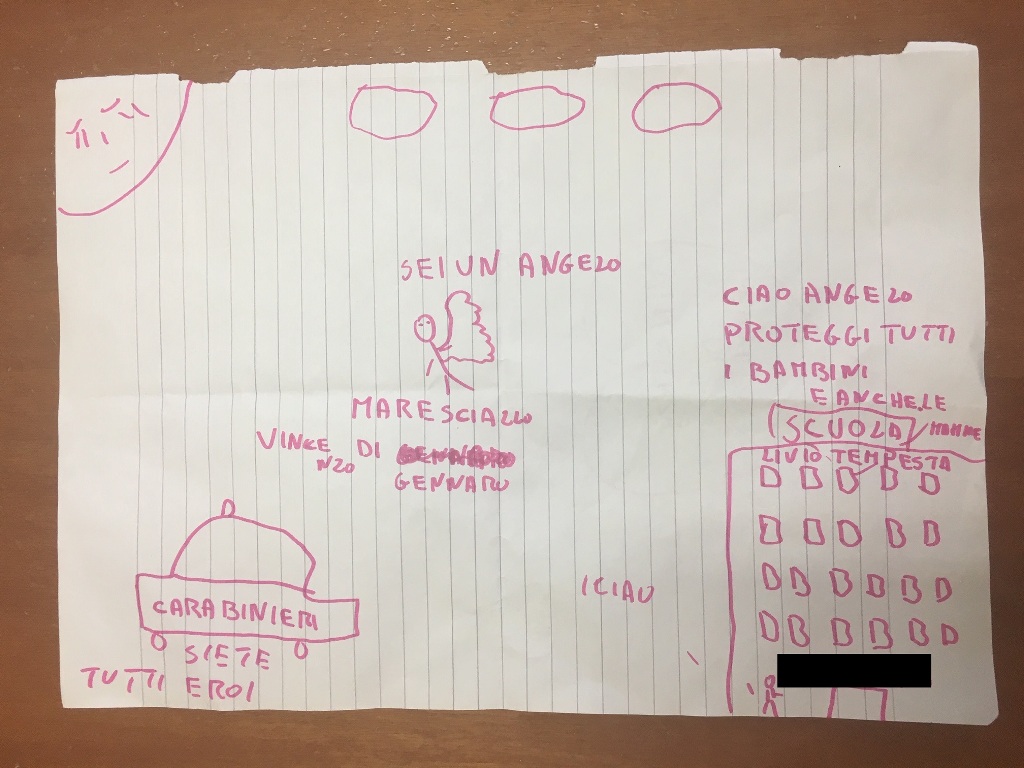 SEI UN ANGELO
CIAO ANGELO
PROTEGGI TUTTI
I BAMBINI
E ANCHE LE
MAMME
SCUOLA
LIVIO TEMPESTA
MARESCIALLO
VINCE
NZO
DI
GENNARO
CARABINIERI
SIETE
TUTTI EROI
CIAO